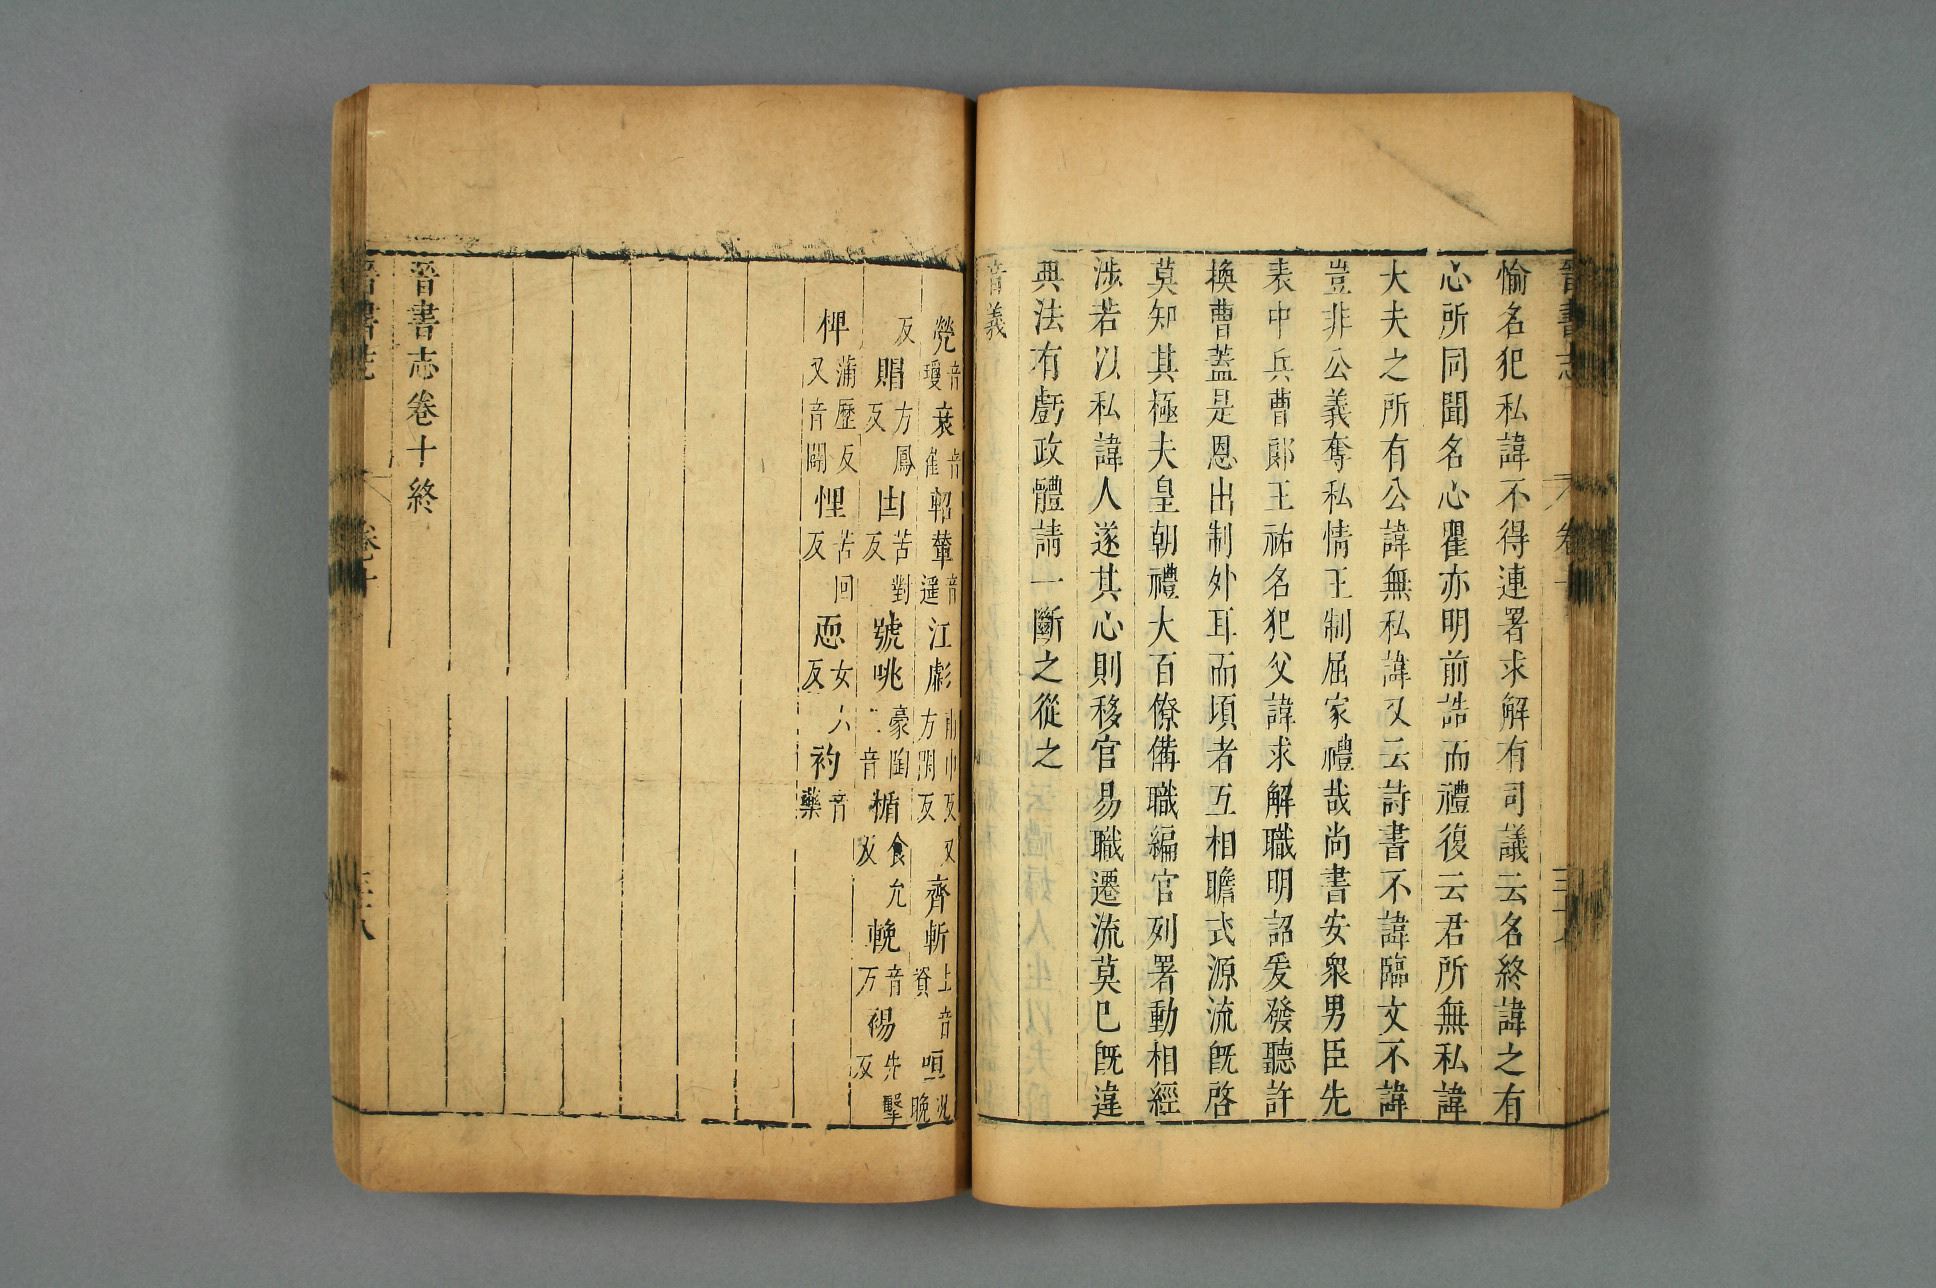 愉名犯私諱不得連署求解有司議云名終諱之有
心所同聞名心瞿亦明前誥而禮復云君所無私諱
大夫之所有公諱無私諱又云詩書不諱臨文不諱
豈非公義奪私情王制屈家禮哉尚書安衆男臣先
表中兵曹郎王祐名犯父諱求解職明詔爰發聽許
換曹蓋是恩出制外耳而頃者互相瞻式源流旣啓
莫知其極夫皇朝禮大百僚備職編官列署動相經
涉若以私諱人遂其心則移官易職遷流莫已旣違
典法有虧政體請一斷之從之
音義
煢音瓊 衰音崔 軺輦音遥 江彪 方閑反又 齊斬上音資 咺況晚
反 賵方鳳反 凷苦對反 號咷豪陶二音 楯食允反 輓音万 裼先擊反
椑蒲歷反又音闢 悝苦回反 恧女六反 礿音藥
晉書志卷十終
晉書志 卷十 三十八